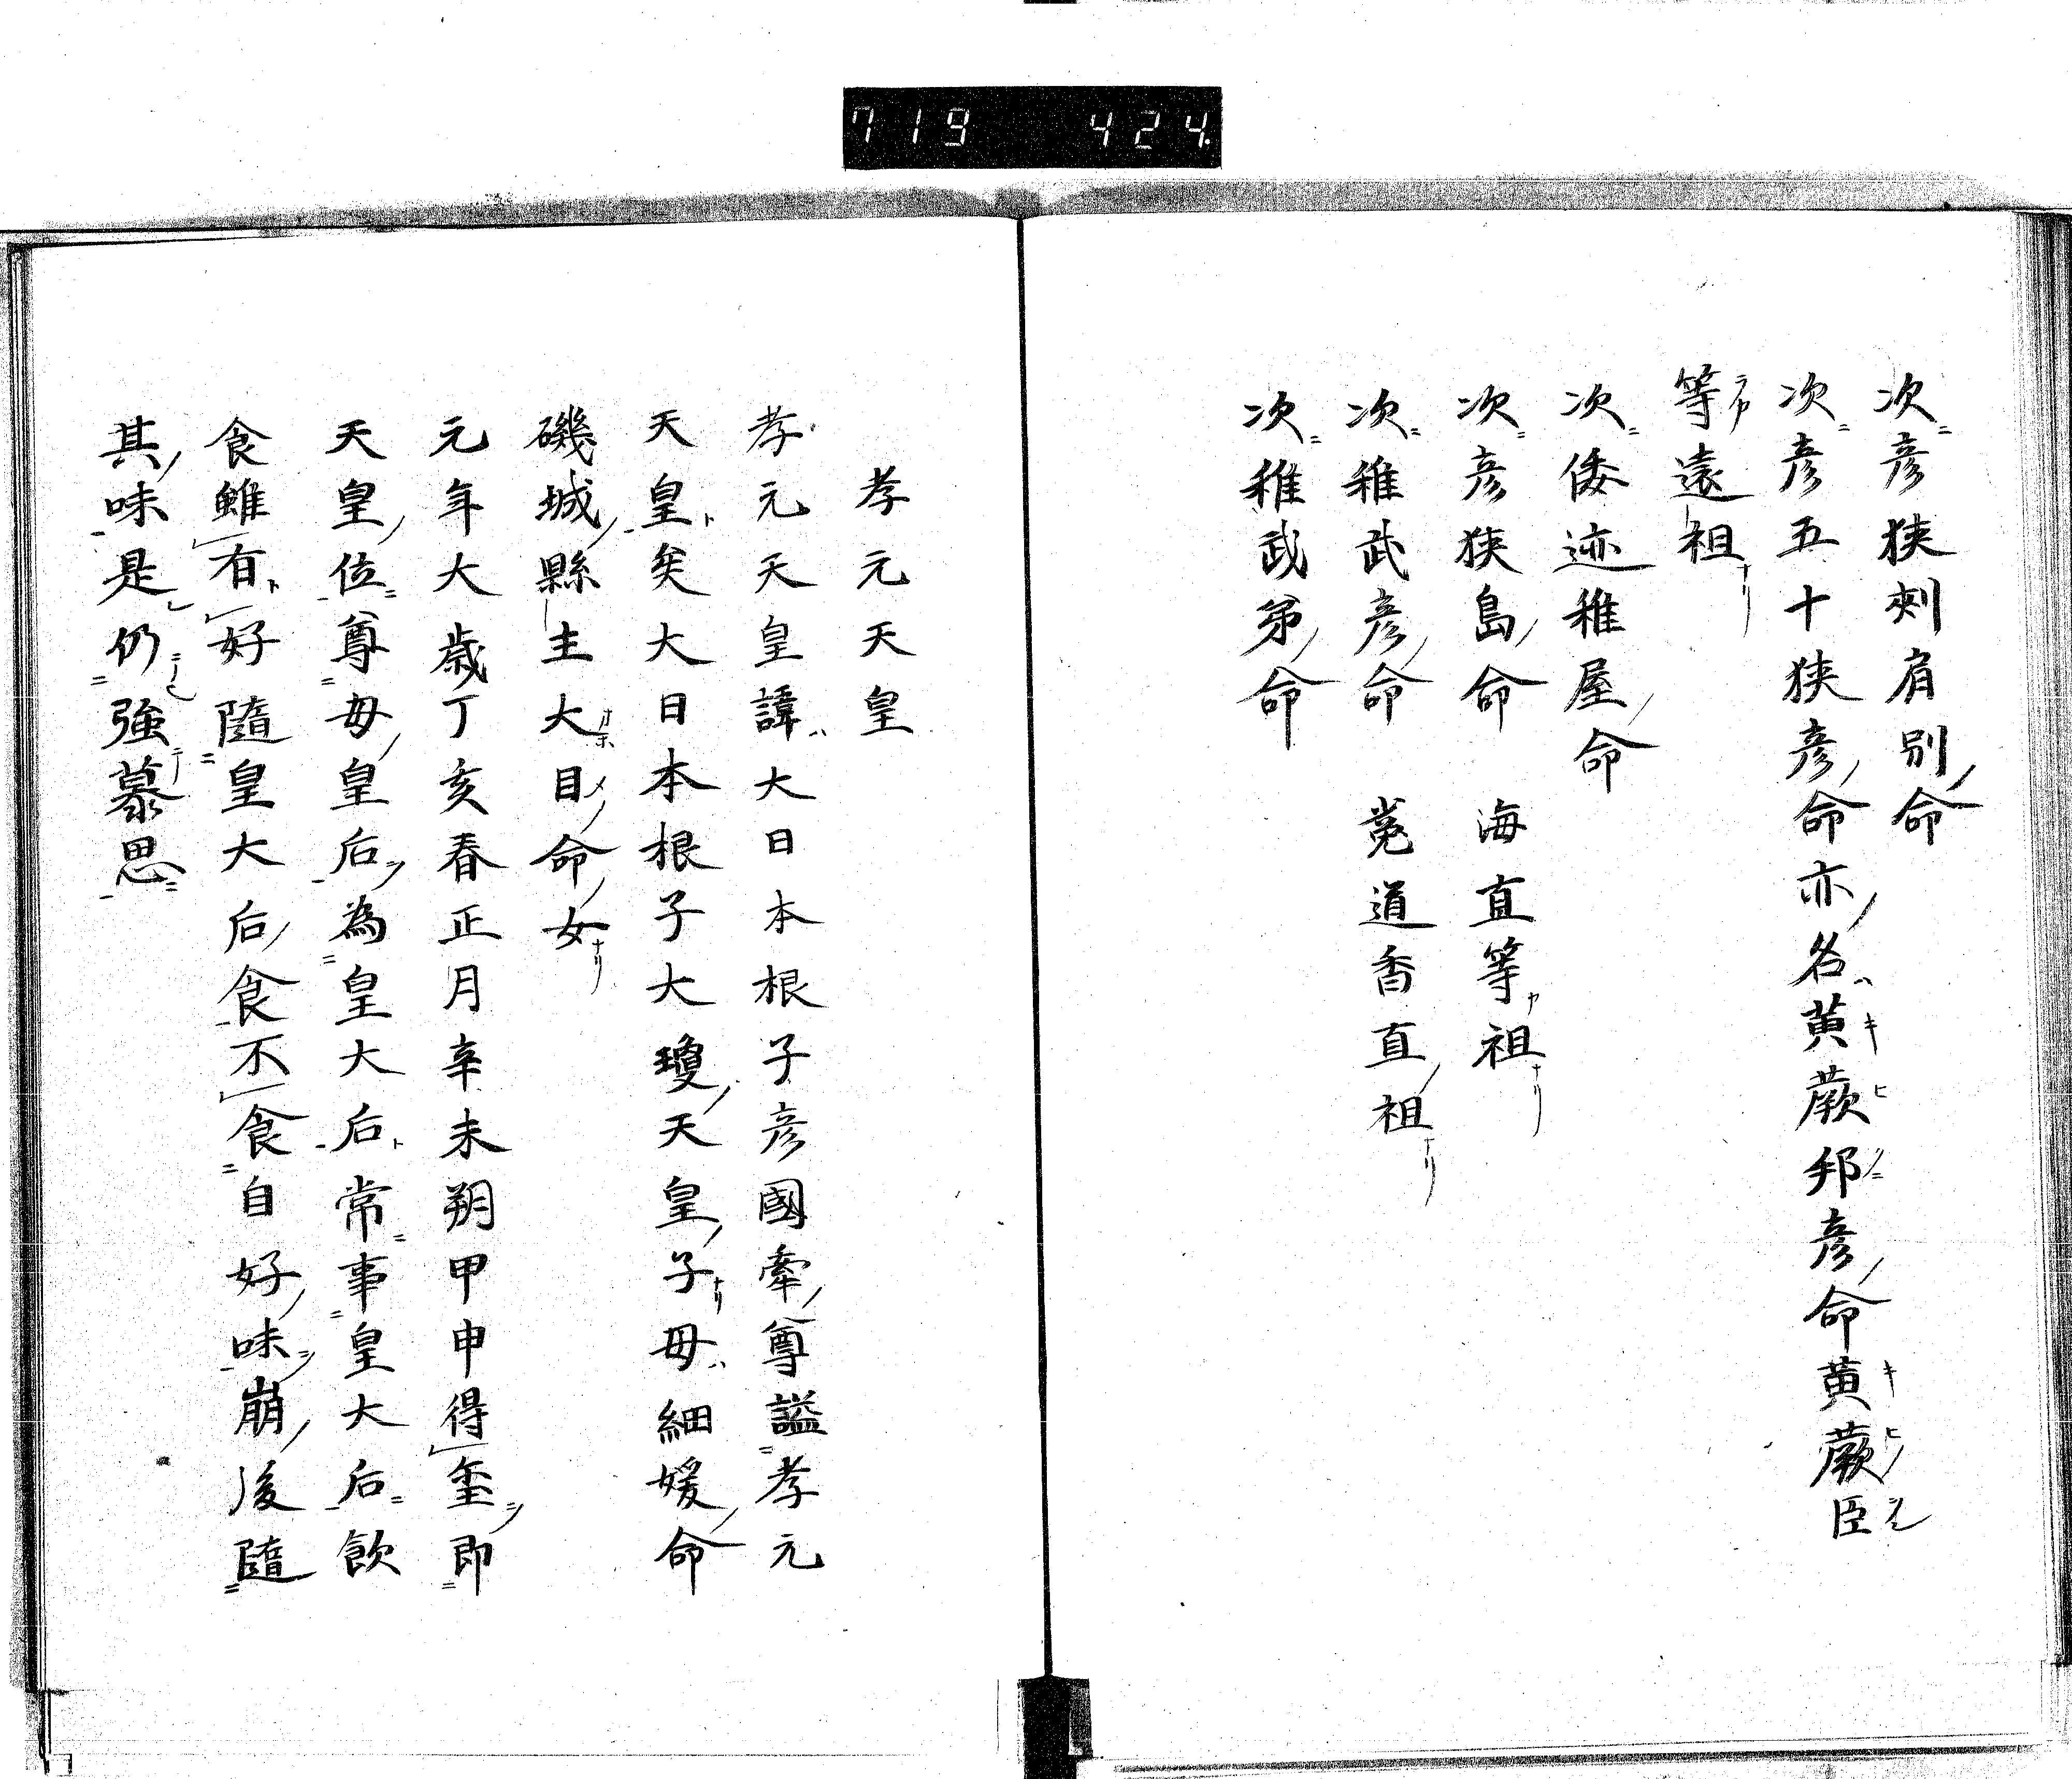 719 424
次彦狹刾肩別命
次彦五十狹彦命亦名黄蕨邦彦命黄蕨臣
等遠祖
次倭迹稚屋命
次彦狹島命 海直等祖
次稚武彦命 菟道香直祖
次稚武弟命
孝元天皇
孝元天皇諱大日本根子彦國牽尊謚孝元
天皇矣大日本根子大瓊天皇子母細媛命
磯城縣主大目命女
元年大歳丁亥春正月辛未朔甲申得璽即
天皇位尊母皇后為皇大后常事皇大后飲
食雖有好隨皇大后食不食自好味崩後隨
其味是仍強慕思